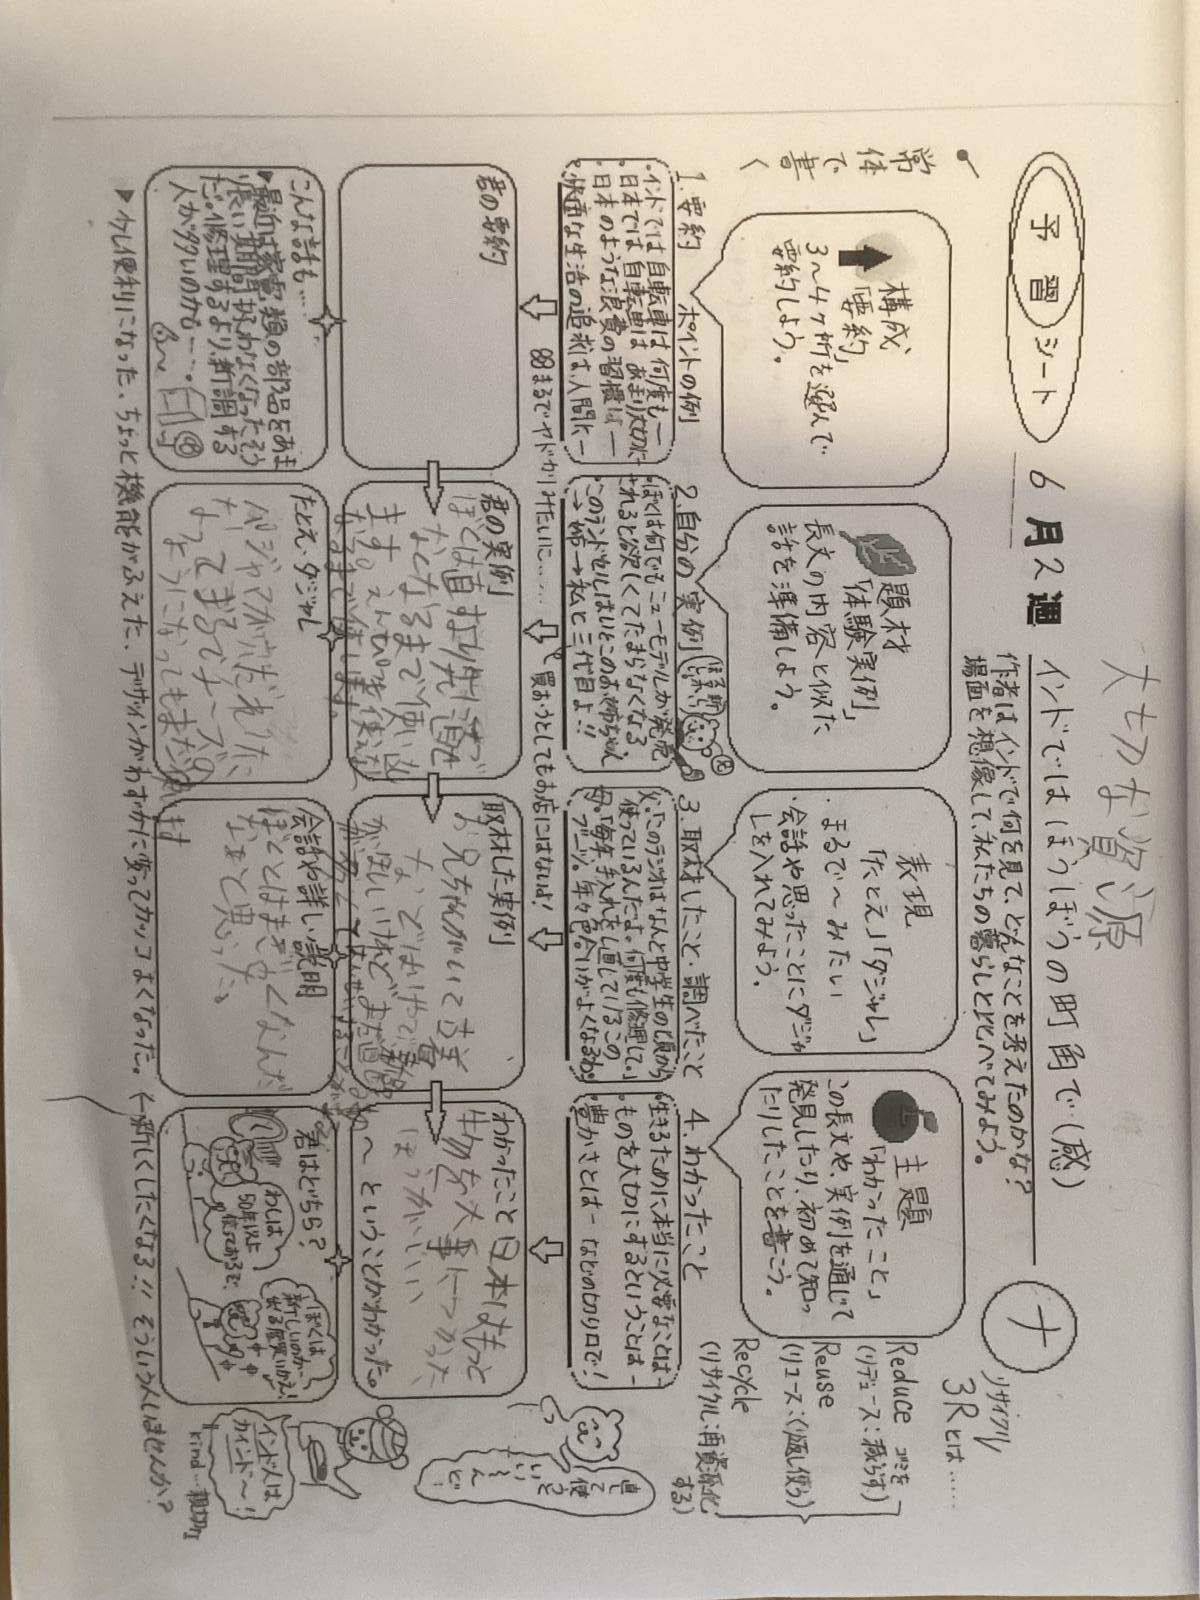 大切な資源
予習シート
6月2週
インドではほうぼうの町角で(感)
ナ
作者はインドで何を見て、どんなことを考えたのかな?
場面を想像して、私たちの暮らしと比べてみよう。
リサイクル
3Rとは……
Reduce ゴミを
(リデュース:減らす)
Reuse
(リユース:くり返し使う)
Recycle
(リサイクル:再資源化
する)
常体で書く
構成
「要約」
3〜4ヶ所を選んで
要約しよう。
題材
「体験実例」
長文の内容と似た
話を準備しよう。
表現
「たとえ」「ダジャレ」
・まるで〜みたい
・会話や思ったことにダジャ
レを入れてみよう。
主題
「わかったこと」
この長文や、実例を通じて
発見したり、初めて知っ
たりしたことを書こう。
1.要約 ポイントの例
・インドでは自転車は何度も―
・日本では自転車はあまり大切に―
・日本のような浪費の習慣は―
・快適な生活の追求は人間に―
2.自分の実例
・ぼくは何でもニューモデルが発売
されると欲しくてたまらなくなる
・このランドセルはいとこのお姉ちゃん
→姉→私と三代目よ!!
3.取材したこと・調べたこと
父「このラジオはなんと中学生の頃から
使っているんだよ。何度も修理して。」
母「毎年、手入れをし直しているこの
ブーツ。年々色合いがよくなるわ。
4.わかったこと
・生きるために本当に必要なことは―
・ものを大切にするということは―
・豊かさとは― などの切り口で!
まるでヤドカリみたいに……
買おうとしてもお店にはないよ!
君の要約
君の実例
ぼくは直す
なくなるまで使い
ます。えんぴつを使えな
くなるまで使います。
取材した実例
お兄ちゃんが
わかったこと
日本はもっと
物を大事につかった
ほうがいい
〜ということがわかった。
こんな話も…
▼最近は家電類の部品をあま
り長い期間扱わなくなったそう
だ。修理するより、新調する
人が多いのかも…。
たとえ・ダジャレ
パジャマがやぶれた、
なってまるでチーズの
ようになってもまだ
会話や詳しい説明
ぼくとはまぎゃくなんだ
なぁと思った。
君はどちら?
わしは
50年以上
使っておるで。
ぼくは
新しいのが
出る度買いかえ!
直して使うといいんど
インド人は
カインド〜!
kind…親切な
▶少し便利になった、ちょっと機能がふえた、デザインがわずかに変ってカッコよくなった。←新しくしたくなる!! そういう人いませんか?